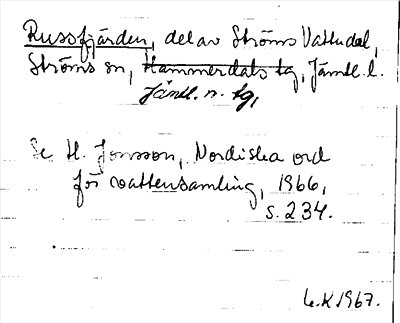 Russfjärden, del av Ströms Vattudal,
Ströms sn, Hammerdals tg, Jämtl. l.
Jämtl. n. tg,
Se H. Jonsson, Nordiska ord
för vattensamling, 1966,
s. 234.
L.K 1967.